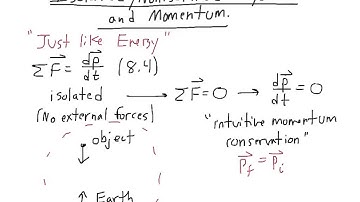 and Momentum.
"Just like Energy"
ΣF⃗ = dp⃗/dt (8.4)
isolated → ΣF⃗=0 → dp⃗/dt = 0
(No external forces)
"intuitive momentum
conservation"
p⃗f = p⃗i
object
Earth